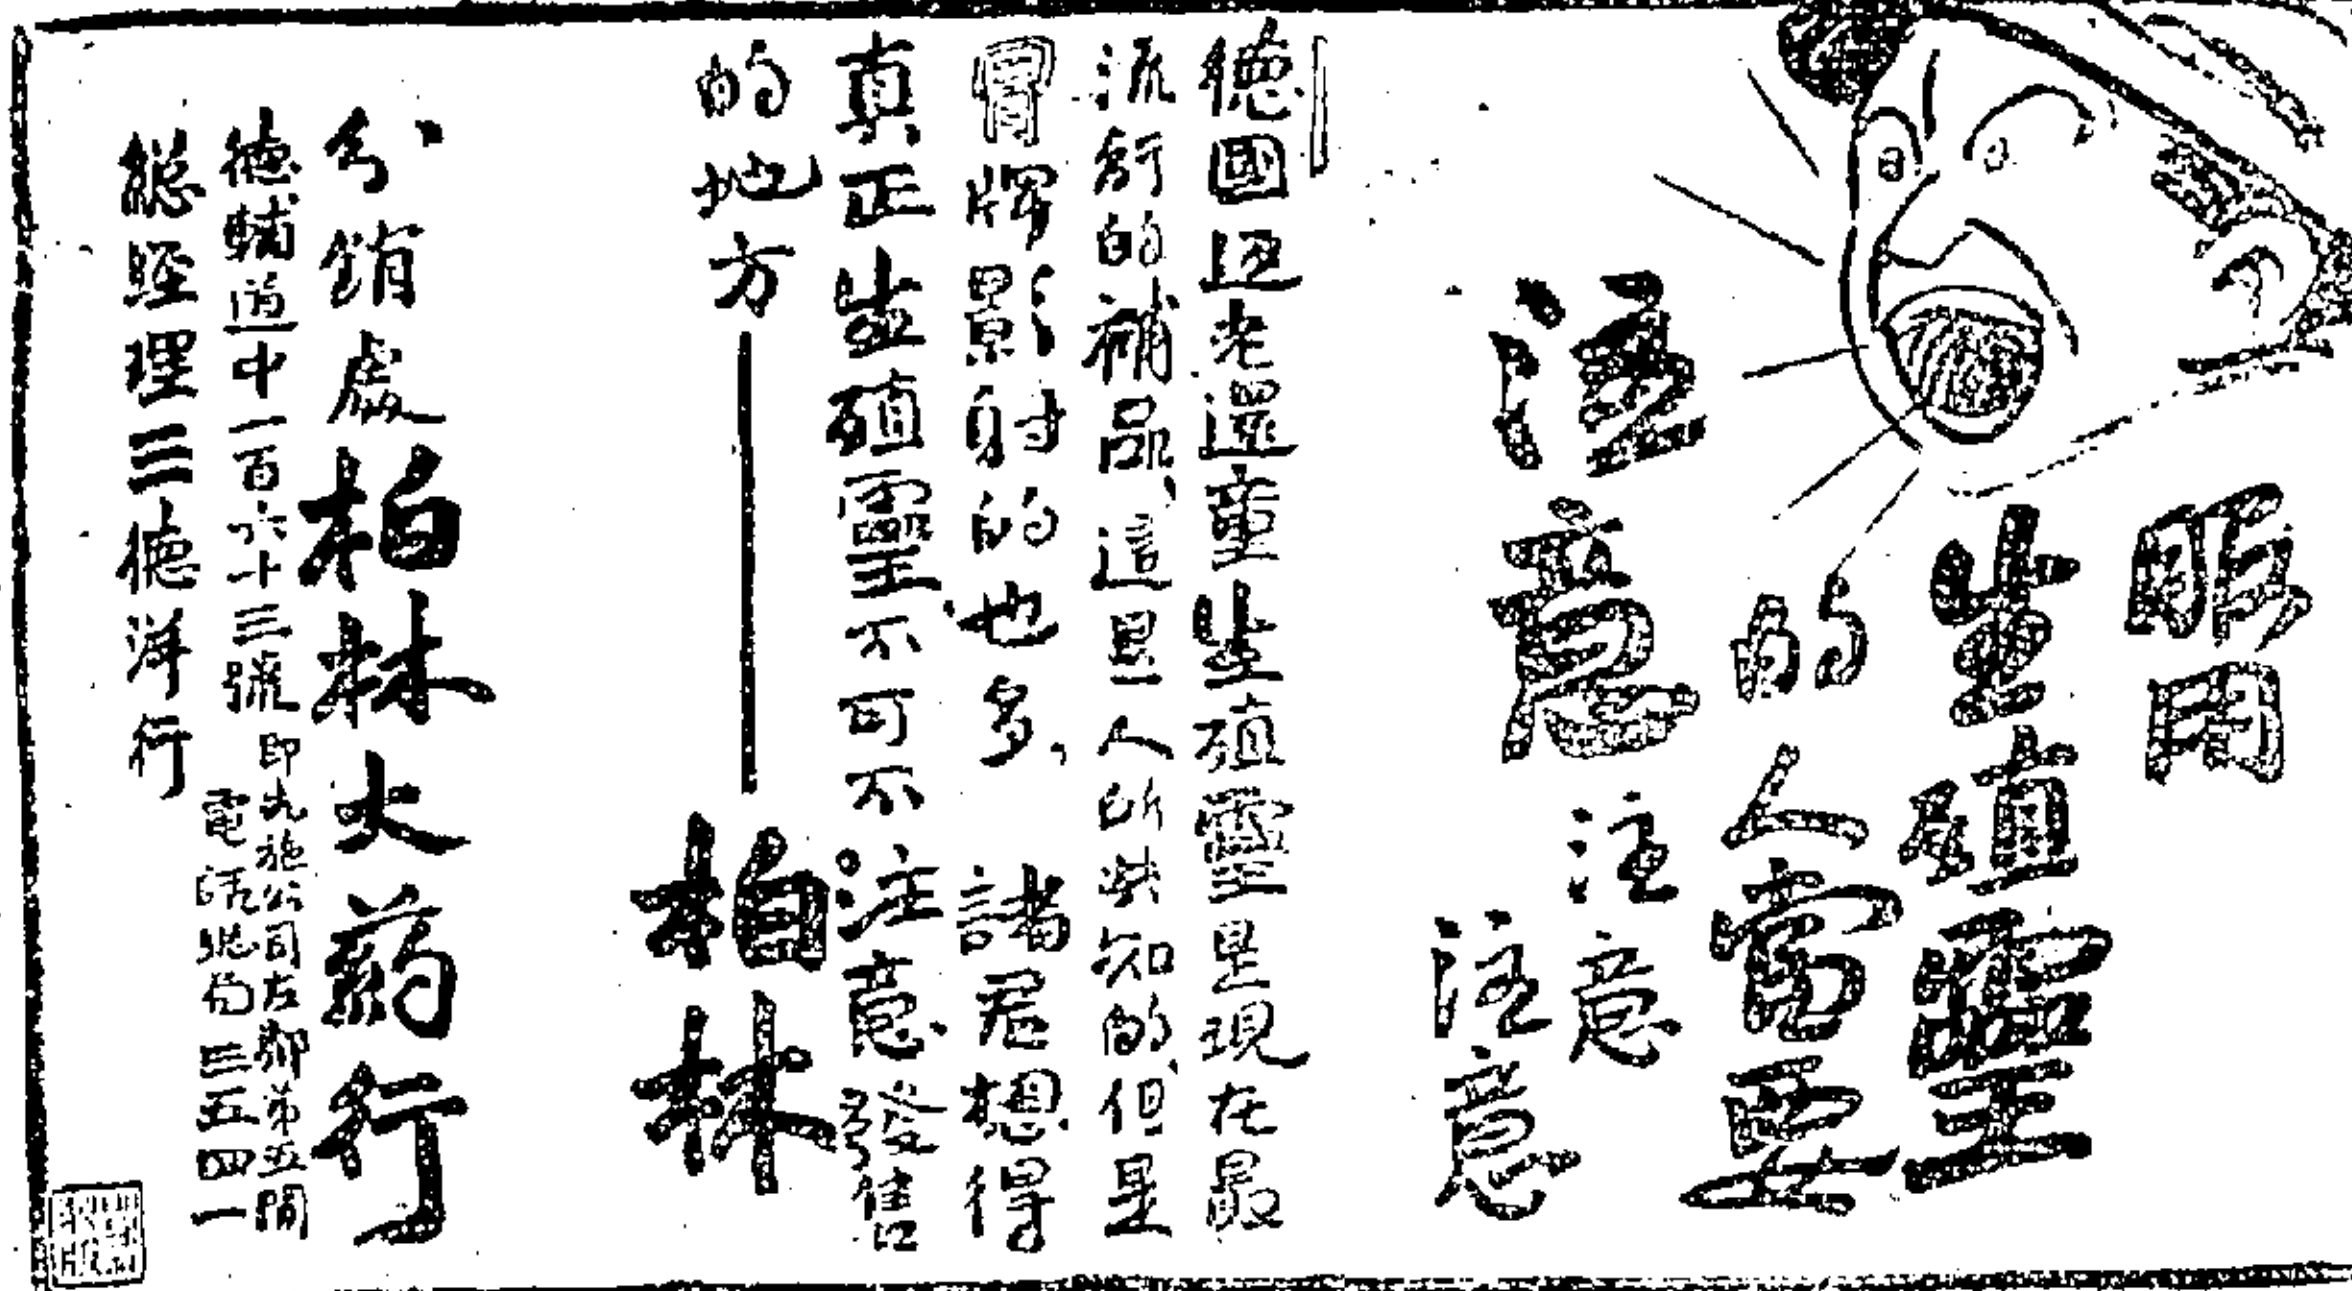 服用
生殖靈
的人當要
注意
注意
注意
德國返老還童生殖靈是現在最
流行的補品、這是人所共知的、但是
冒牌影射的也多、諸君想得
真正生殖靈、不可不注意發售
的地方——柏林
分銷處柏林大葯行
德輔道中一百六十三號即先施公司左鄰第五間
電話總局三五四一
總經理三德洋行